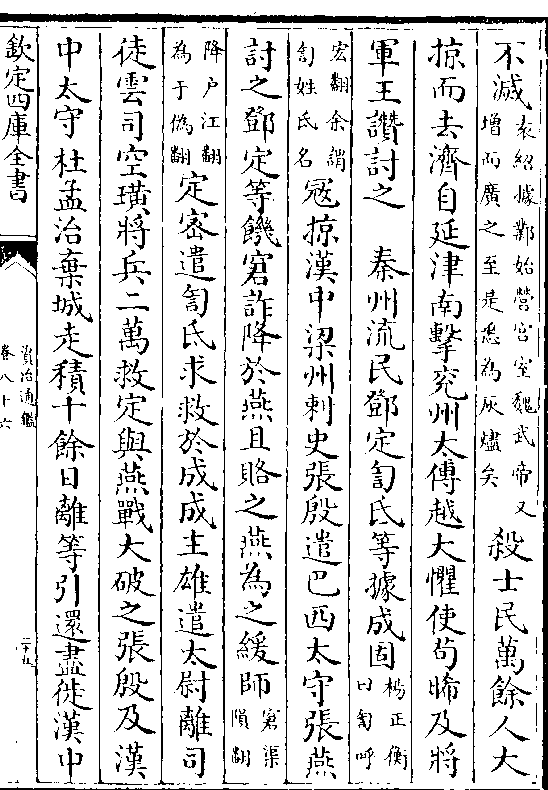 不滅袁紹據鄴始營宮室魏武帝又增而廣之至是悉為灰燼矣殺士民萬餘人大
掠而去濟自延津南擊兖州太傅越大懼使茍晞及將
軍王讚討之　秦州流民鄧定訇氐等據成固楊正衡曰訇呼
宏翻余謂訇姓氐名寇掠漢中梁州刺史張殷遣巴西太守張燕
討之鄧定等饑窘詐降於燕且賂之燕為之緩師窘渠隕翻
降户江翻為于偽翻定密遣訇氐求救於成成主雄遣太尉離司
徒雲司空璜將兵二萬救定與燕戰大破之張殷及漢
中太守杜孟治棄城走積十餘日離等引還盡徙漢中
欽定四庫全書
資治通鑑
卷八十六